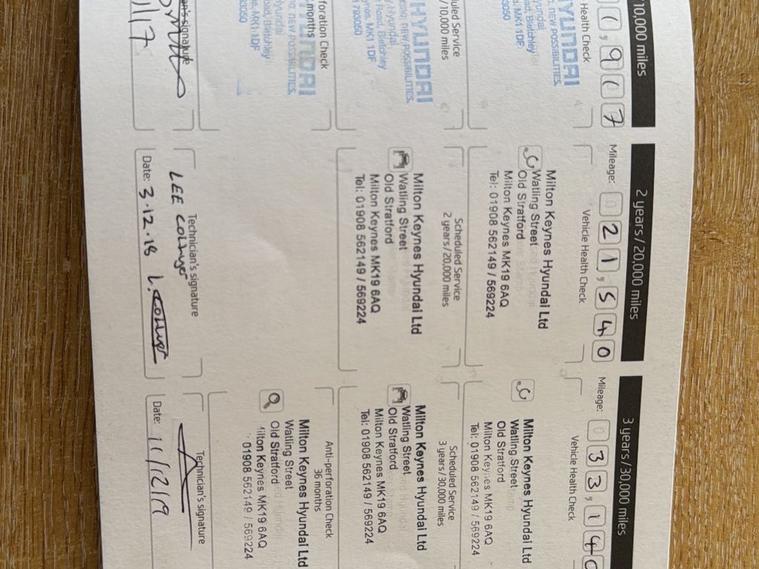 10,000 miles
Health Check
HYUNDAI
NEW POSSIBILITIES.
Bletchley
MK1 1DF
Scheduled Service
10,000 miles
HYUNDAI
NEW POSSIBILITIES.
Hyundai
Road, Bletchley
MK1 1DF
Anti-perforation Check
months
HYUNDAI
NEW POSSIBILITIES.
Hyundai
MK1 1DF
signature
2 years/20,000 miles
Mileage: 021,540
Vehicle Health Check
Milton Keynes Hyundai Ltd
Watling Street
Old Stratford
Milton Keynes MK19 6AQ
Tel: 01908 562149 / 569224
Scheduled Service
2 years/20,000 miles
Milton Keynes Hyundai Ltd
Watling Street
Old Stratford
Milton Keynes MK19 6AQ
Tel: 01908 562149 / 569224
Technician's signature
LEE
Date: 3.12.18
3 years/30,000 miles
Mileage: 033,14
Vehicle Health Check
Milton Keynes Hyundai Ltd
Watling Street
Old Stratford
Milton Keynes MK19 6AQ
Tel: 01908 562149 / 569224
Scheduled Service
3 years/30,000 miles
Milton Keynes Hyundai Ltd
Watling Street
Old Stratford
Milton Keynes MK19 6AQ
Tel: 01908 562149 / 569224
Anti-perforation Check
36 months
Milton Keynes Hyundai Ltd
Watling Street
Old Stratford
Milton Keynes MK19 6AQ
01908 562149 / 569224
Technician's signature
Date: 11/12/19